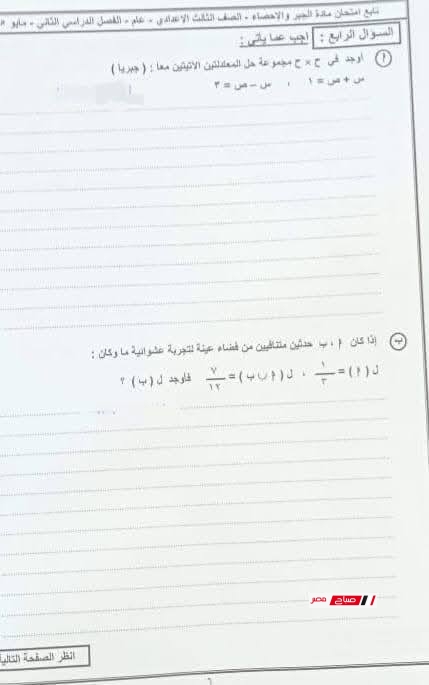 تابع امتحان مادة الجبر والإحصاء - الصف الثالث الإعدادي - عام - الفصل الدراسي الثاني - مايو
السؤال الرابع : أجب عما يأتي :
أ أوجد في ح × ح مجموعة حل المعادلتين الآتيتين معا : ( جبريا )
س + ص = ١ ، س - ص = ٣
ب إذا كان أ ، ب حدثين متنافيين من فضاء عينة لتجربة عشوائية ما وكان :
ل ( أ ) = ١/٣ ، ل ( أ ∪ ب ) = ٧/١٢ فأوجد ل ( ب ) ؟
صباح مصر
انظر الصفحة التالية